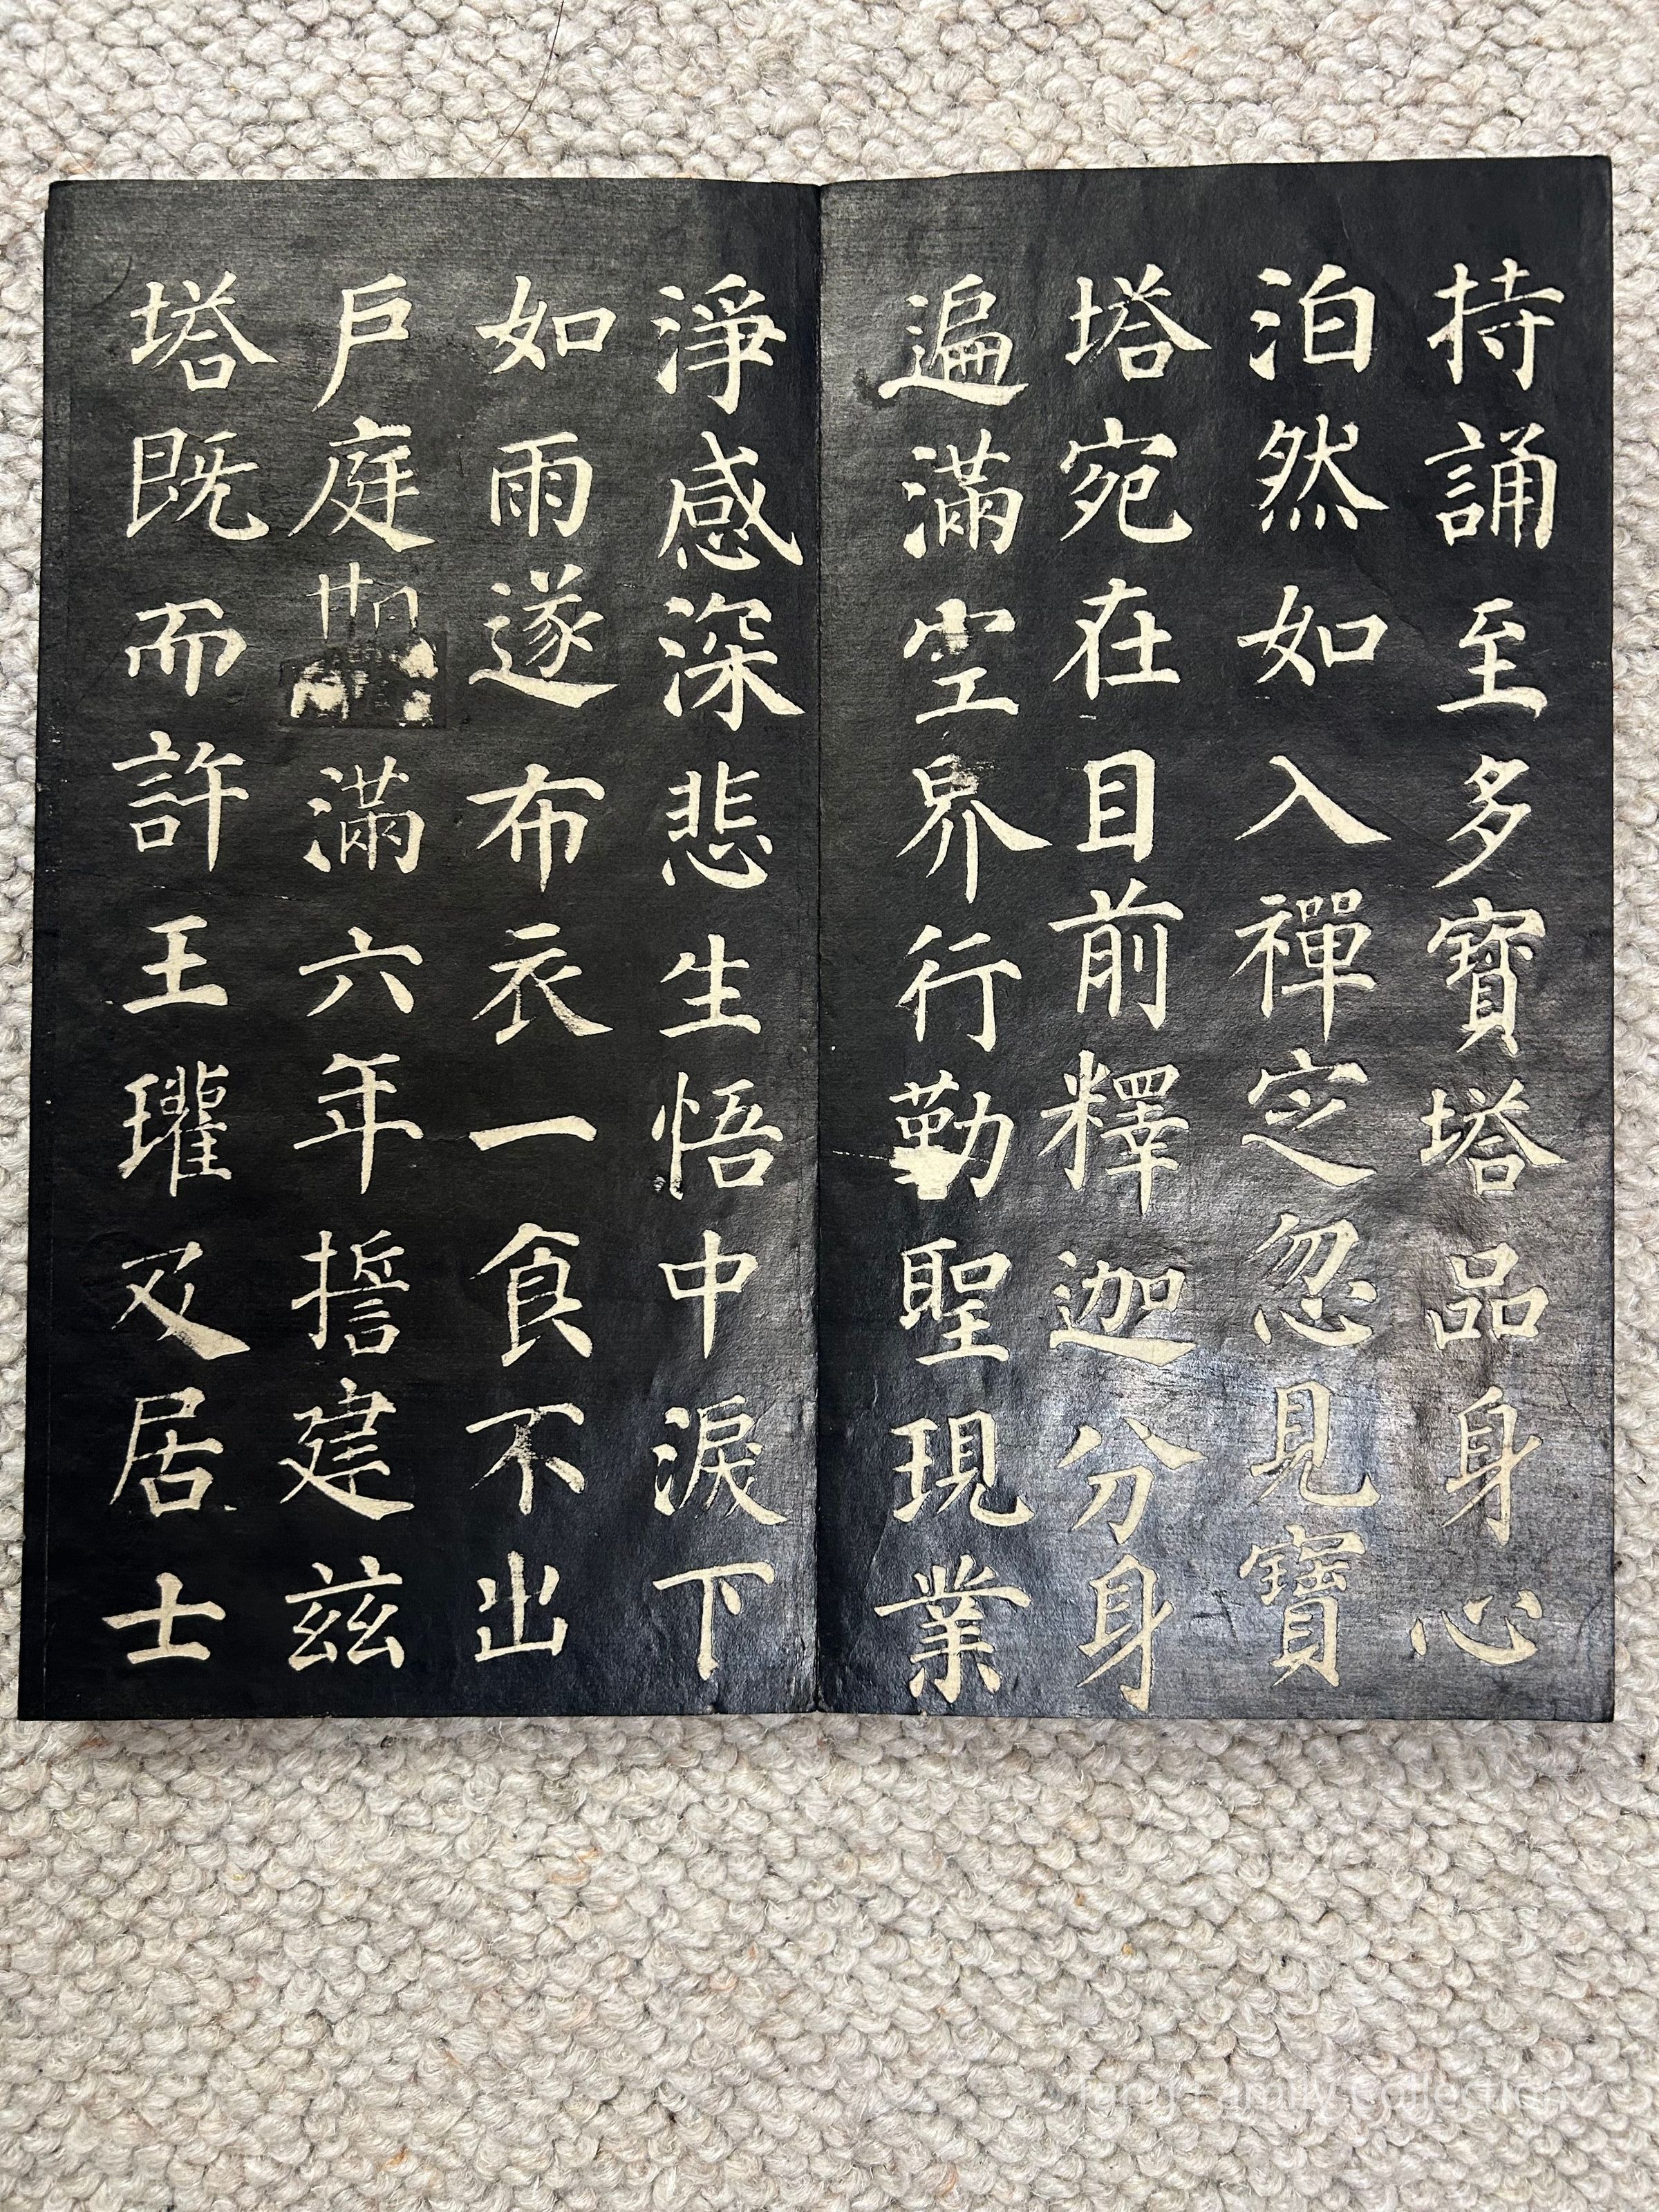 持誦至多寶塔品身心
泊然如入禪定忽見寶
塔宛在目前釋迦分身
遍滿空界行勤聖現業
淨感深悲生悟中淚下
如雨遂布衣一食不出
戶庭期滿六年誓建茲
塔既而許王瓘及居士
Tang Family Collection